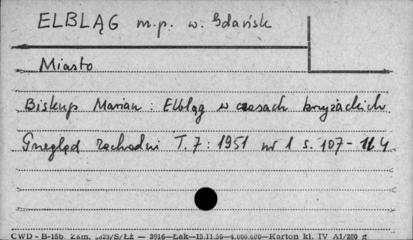 ELBLĄG m.p. w. Gdańsk
Miasto
Biskup Marian: Elbląg w czasach krzyżackich
Przegląd Zachodni T. 7: 1951 nr 1 s. 107-114
CWD - B-15b. Zam. /S/Łż — 3916—Łak—15.11.56—4.000.000—Karton kl. IV A1/200 g